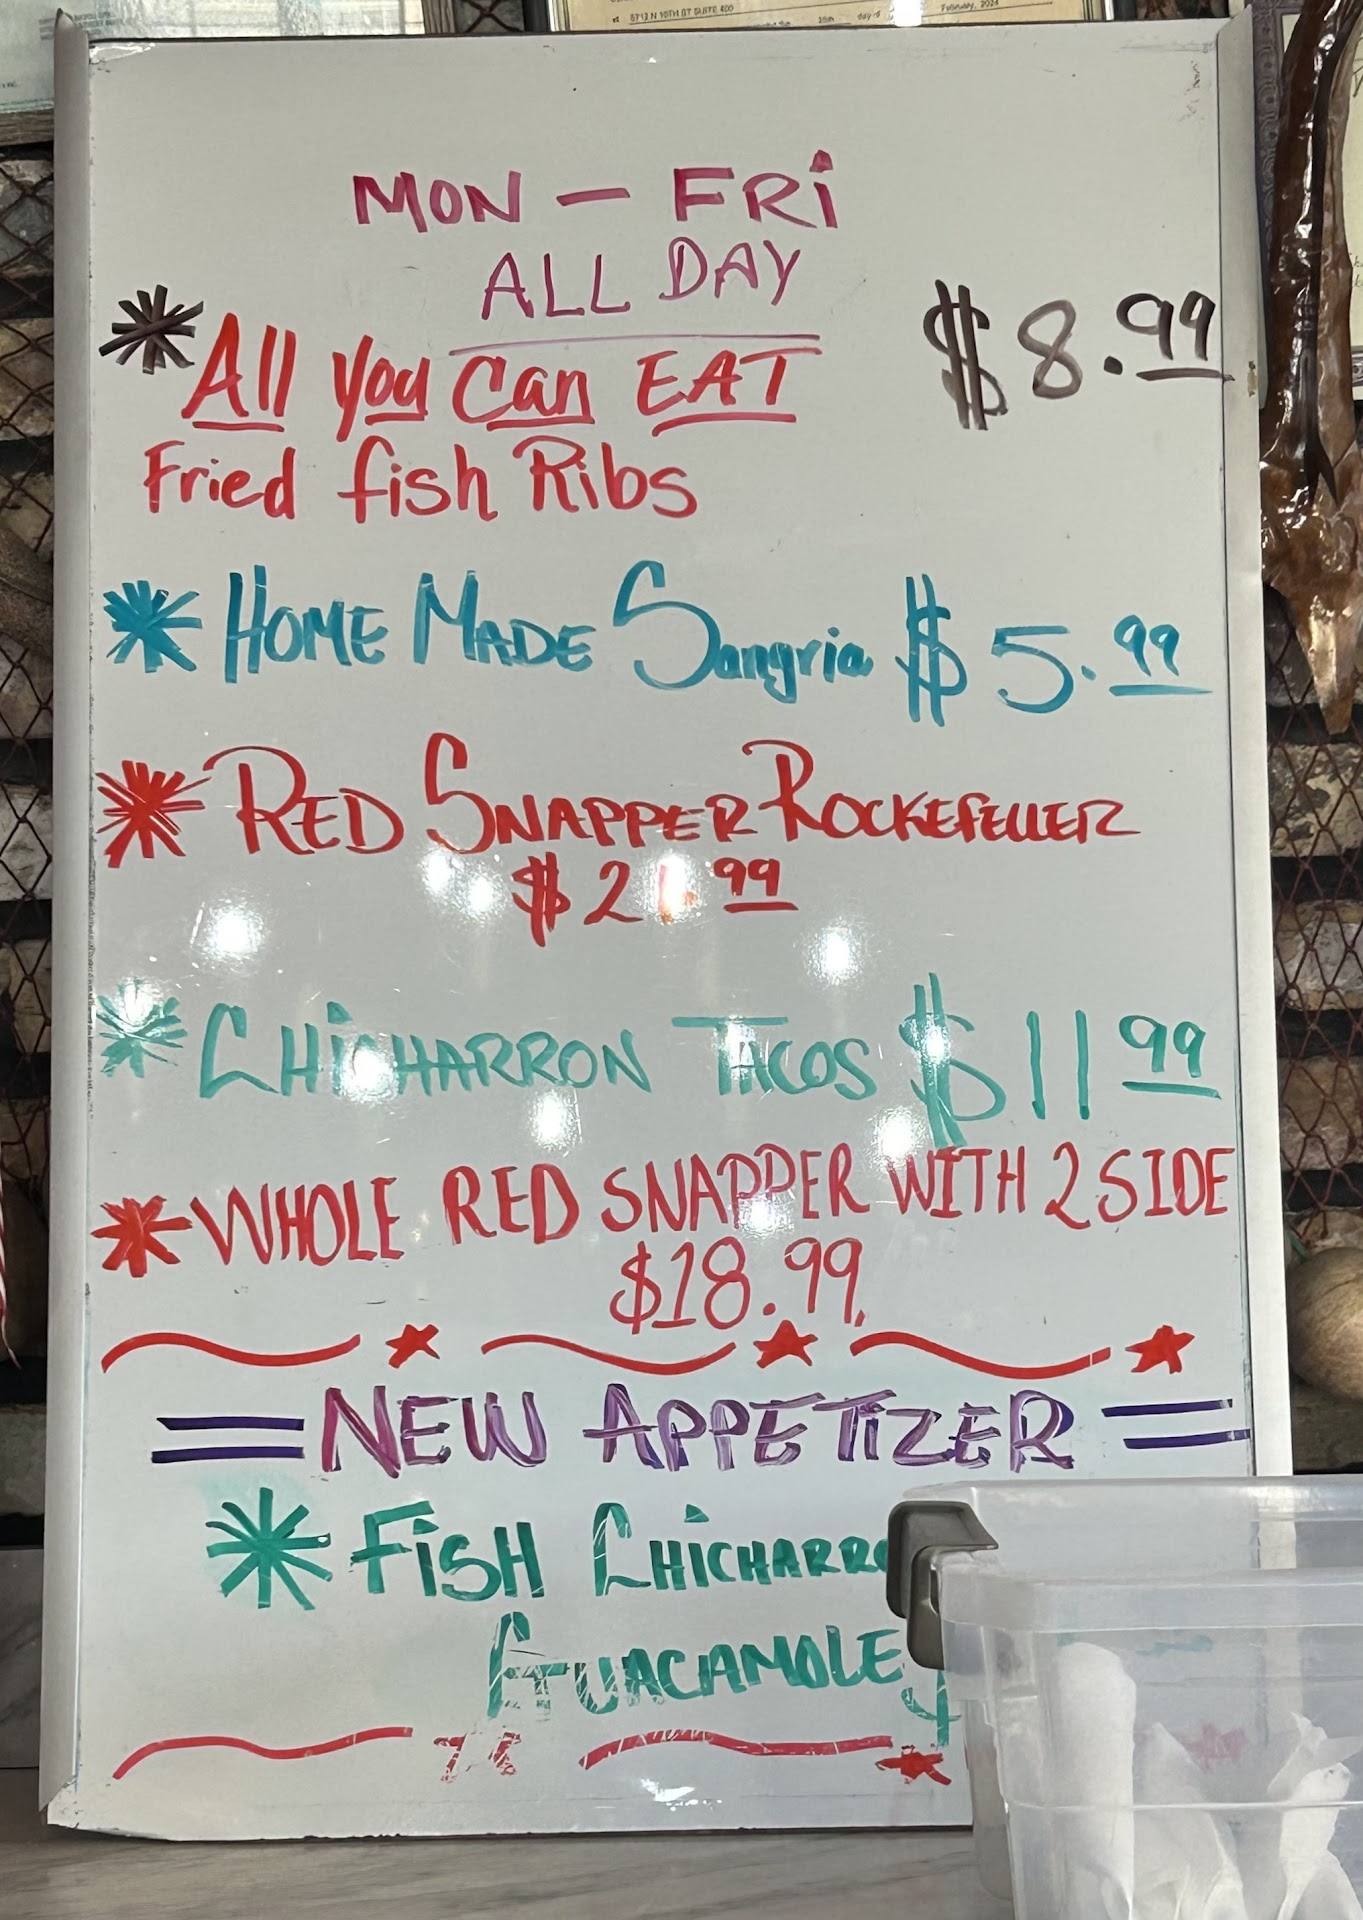 5713 N 10TH ST SUITE 400
February, 2023
MON - FRi
ALL DAY
All You Can EAT $8.99
Fried fish Ribs
HOME MADE Sangria $5.99
RED SNAPPER ROCKEFELLER
$21.99
CHiCHARRON TACOS $11 99
WHOLE RED SNAPPER WITH 2 SIDE
$18.99
NEW APPETIZER
FiSH
GUACAMOLE $